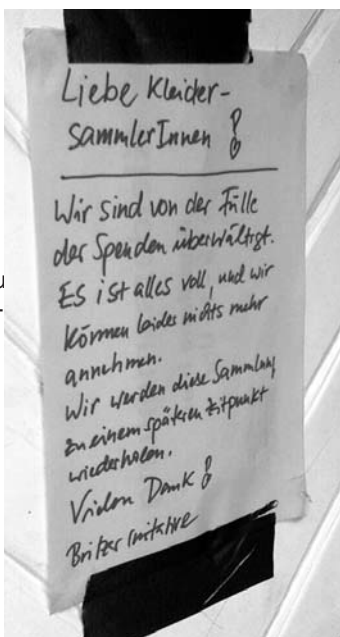 Liebe Kleider-
SammlerInnen !
Wir sind von der Fülle
der Spenden überwältigt.
Es ist alles voll, und wir
können leider nichts mehr
annehmen.
Wir werden diese Sammlung
zu einem späteren Zeitpunkt
wiederholen.
Vielen Dank !
Britzer Initiative